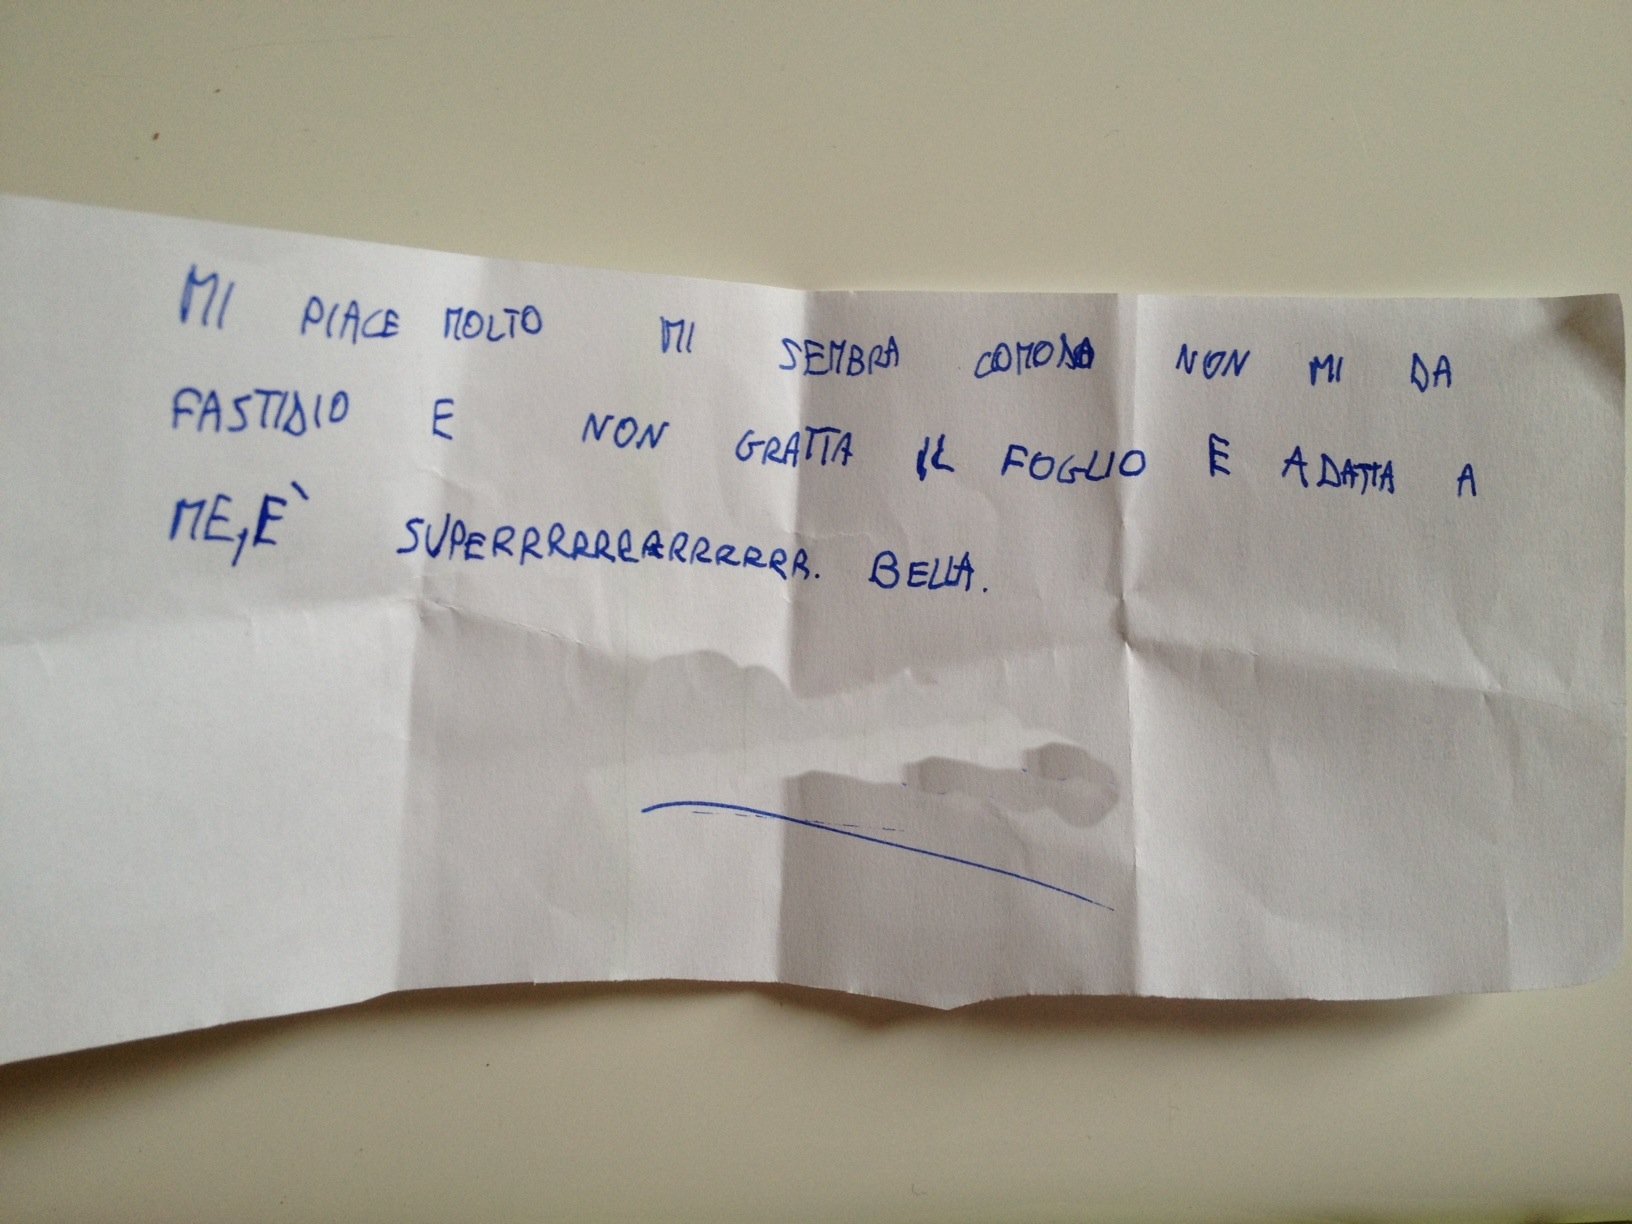 MI PIACE MOLTO MI SEMBRA COMODA NON MI DA
FASTIDIO E NON GRATTA IL FOGLIO E ADATTA A
ME, E` SUPERRRRRRRARRRRRR. BELLA.